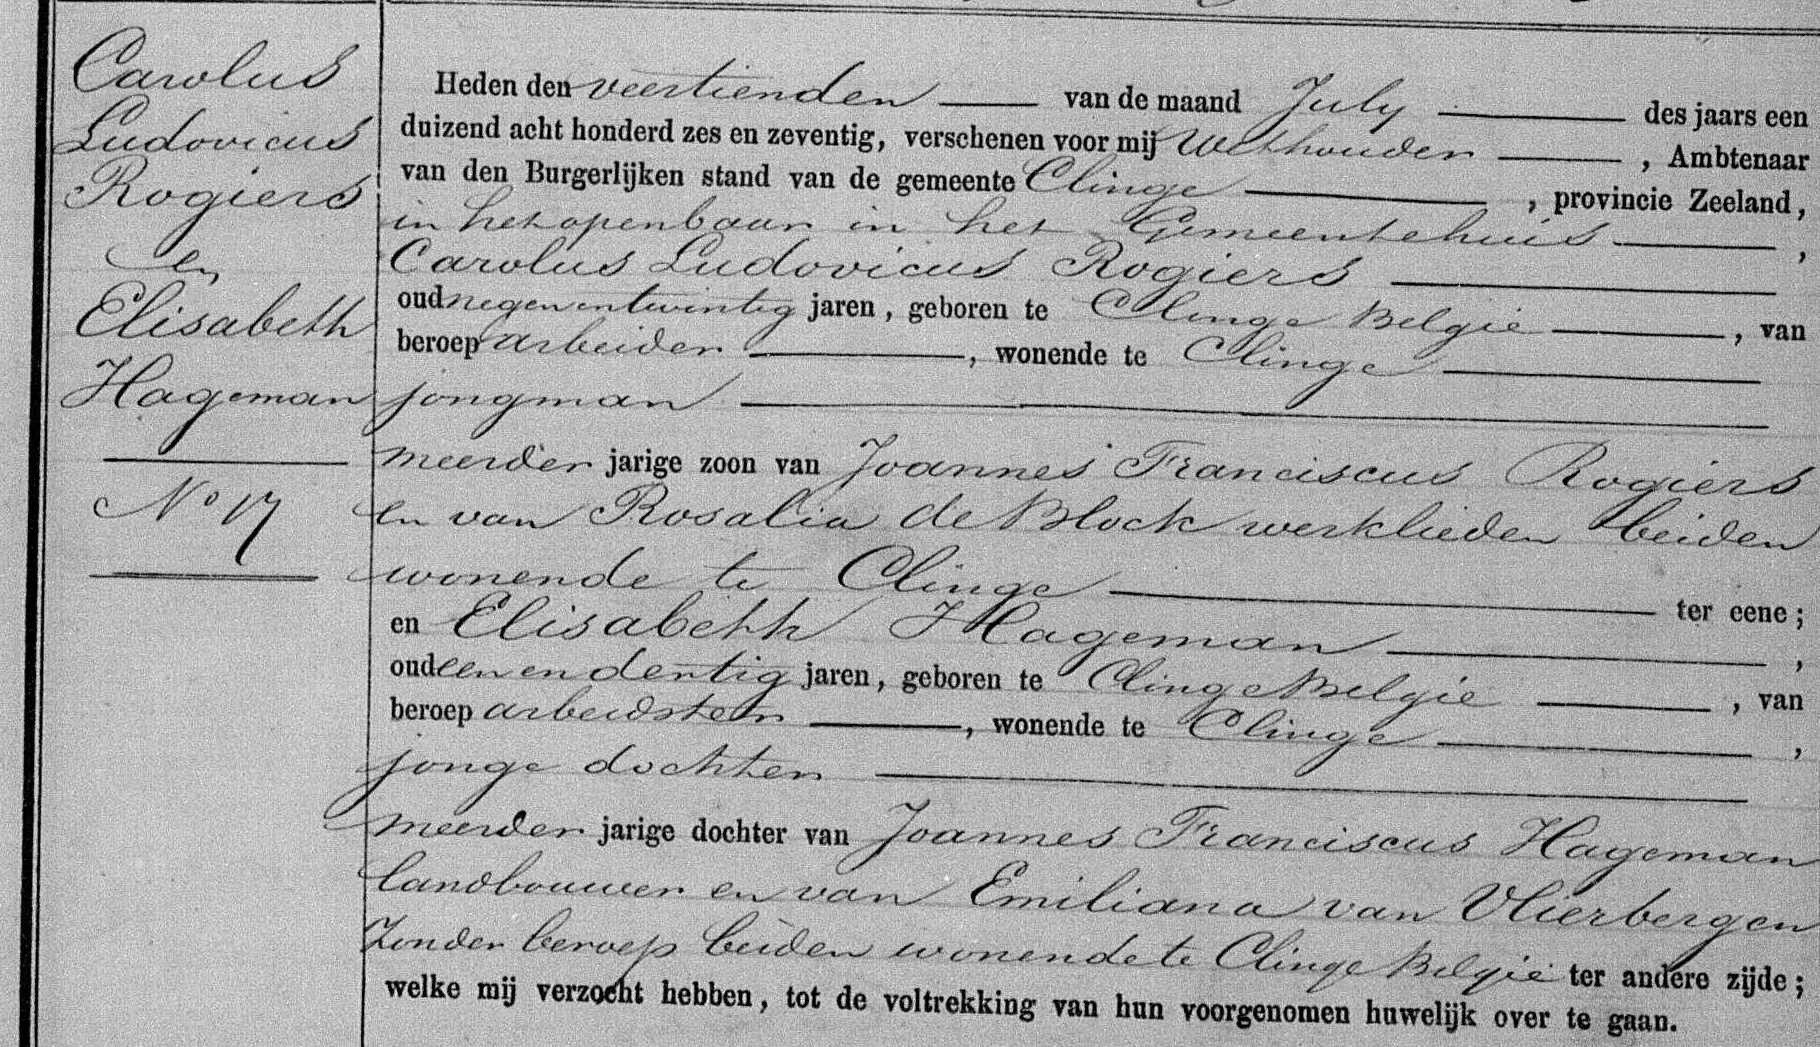 Carolus
Ludovicus
Rogiers
en
Elisabeth
Hageman
No 17
Heden den veertienden van de maand July des jaars een
duizend acht honderd zes en zeventig, verschenen voor mij Wethouder, Ambtenaar
van den Burgerlijken stand van de gemeente Clinge, provincie Zeeland,
in het openbaar in het Gemeentehuis,
Carolus Ludovicus Rogiers
oud negen en twintig jaren, geboren te Clinge België, van
beroep arbeider, wonende te Clinge
jongman
meerder jarige zoon van Joannes Franciscus Rogiers
en van Rosalia de Block werklieden beiden
wonende te Clinge ter eene;
en Elisabeth Hageman,
oud een en dertig jaren, geboren te Clinge België, van
beroep arbeidster, wonende te Clinge,
jonge dochter
meerder jarige dochter van Joannes Franciscus Hageman
landbouwer en van Emiliana van Vlierbergen
zonder beroep beiden wonende te Clinge België ter andere zijde;
welke mij verzocht hebben, tot de voltrekking van hun voorgenomen huwelijk over te gaan.